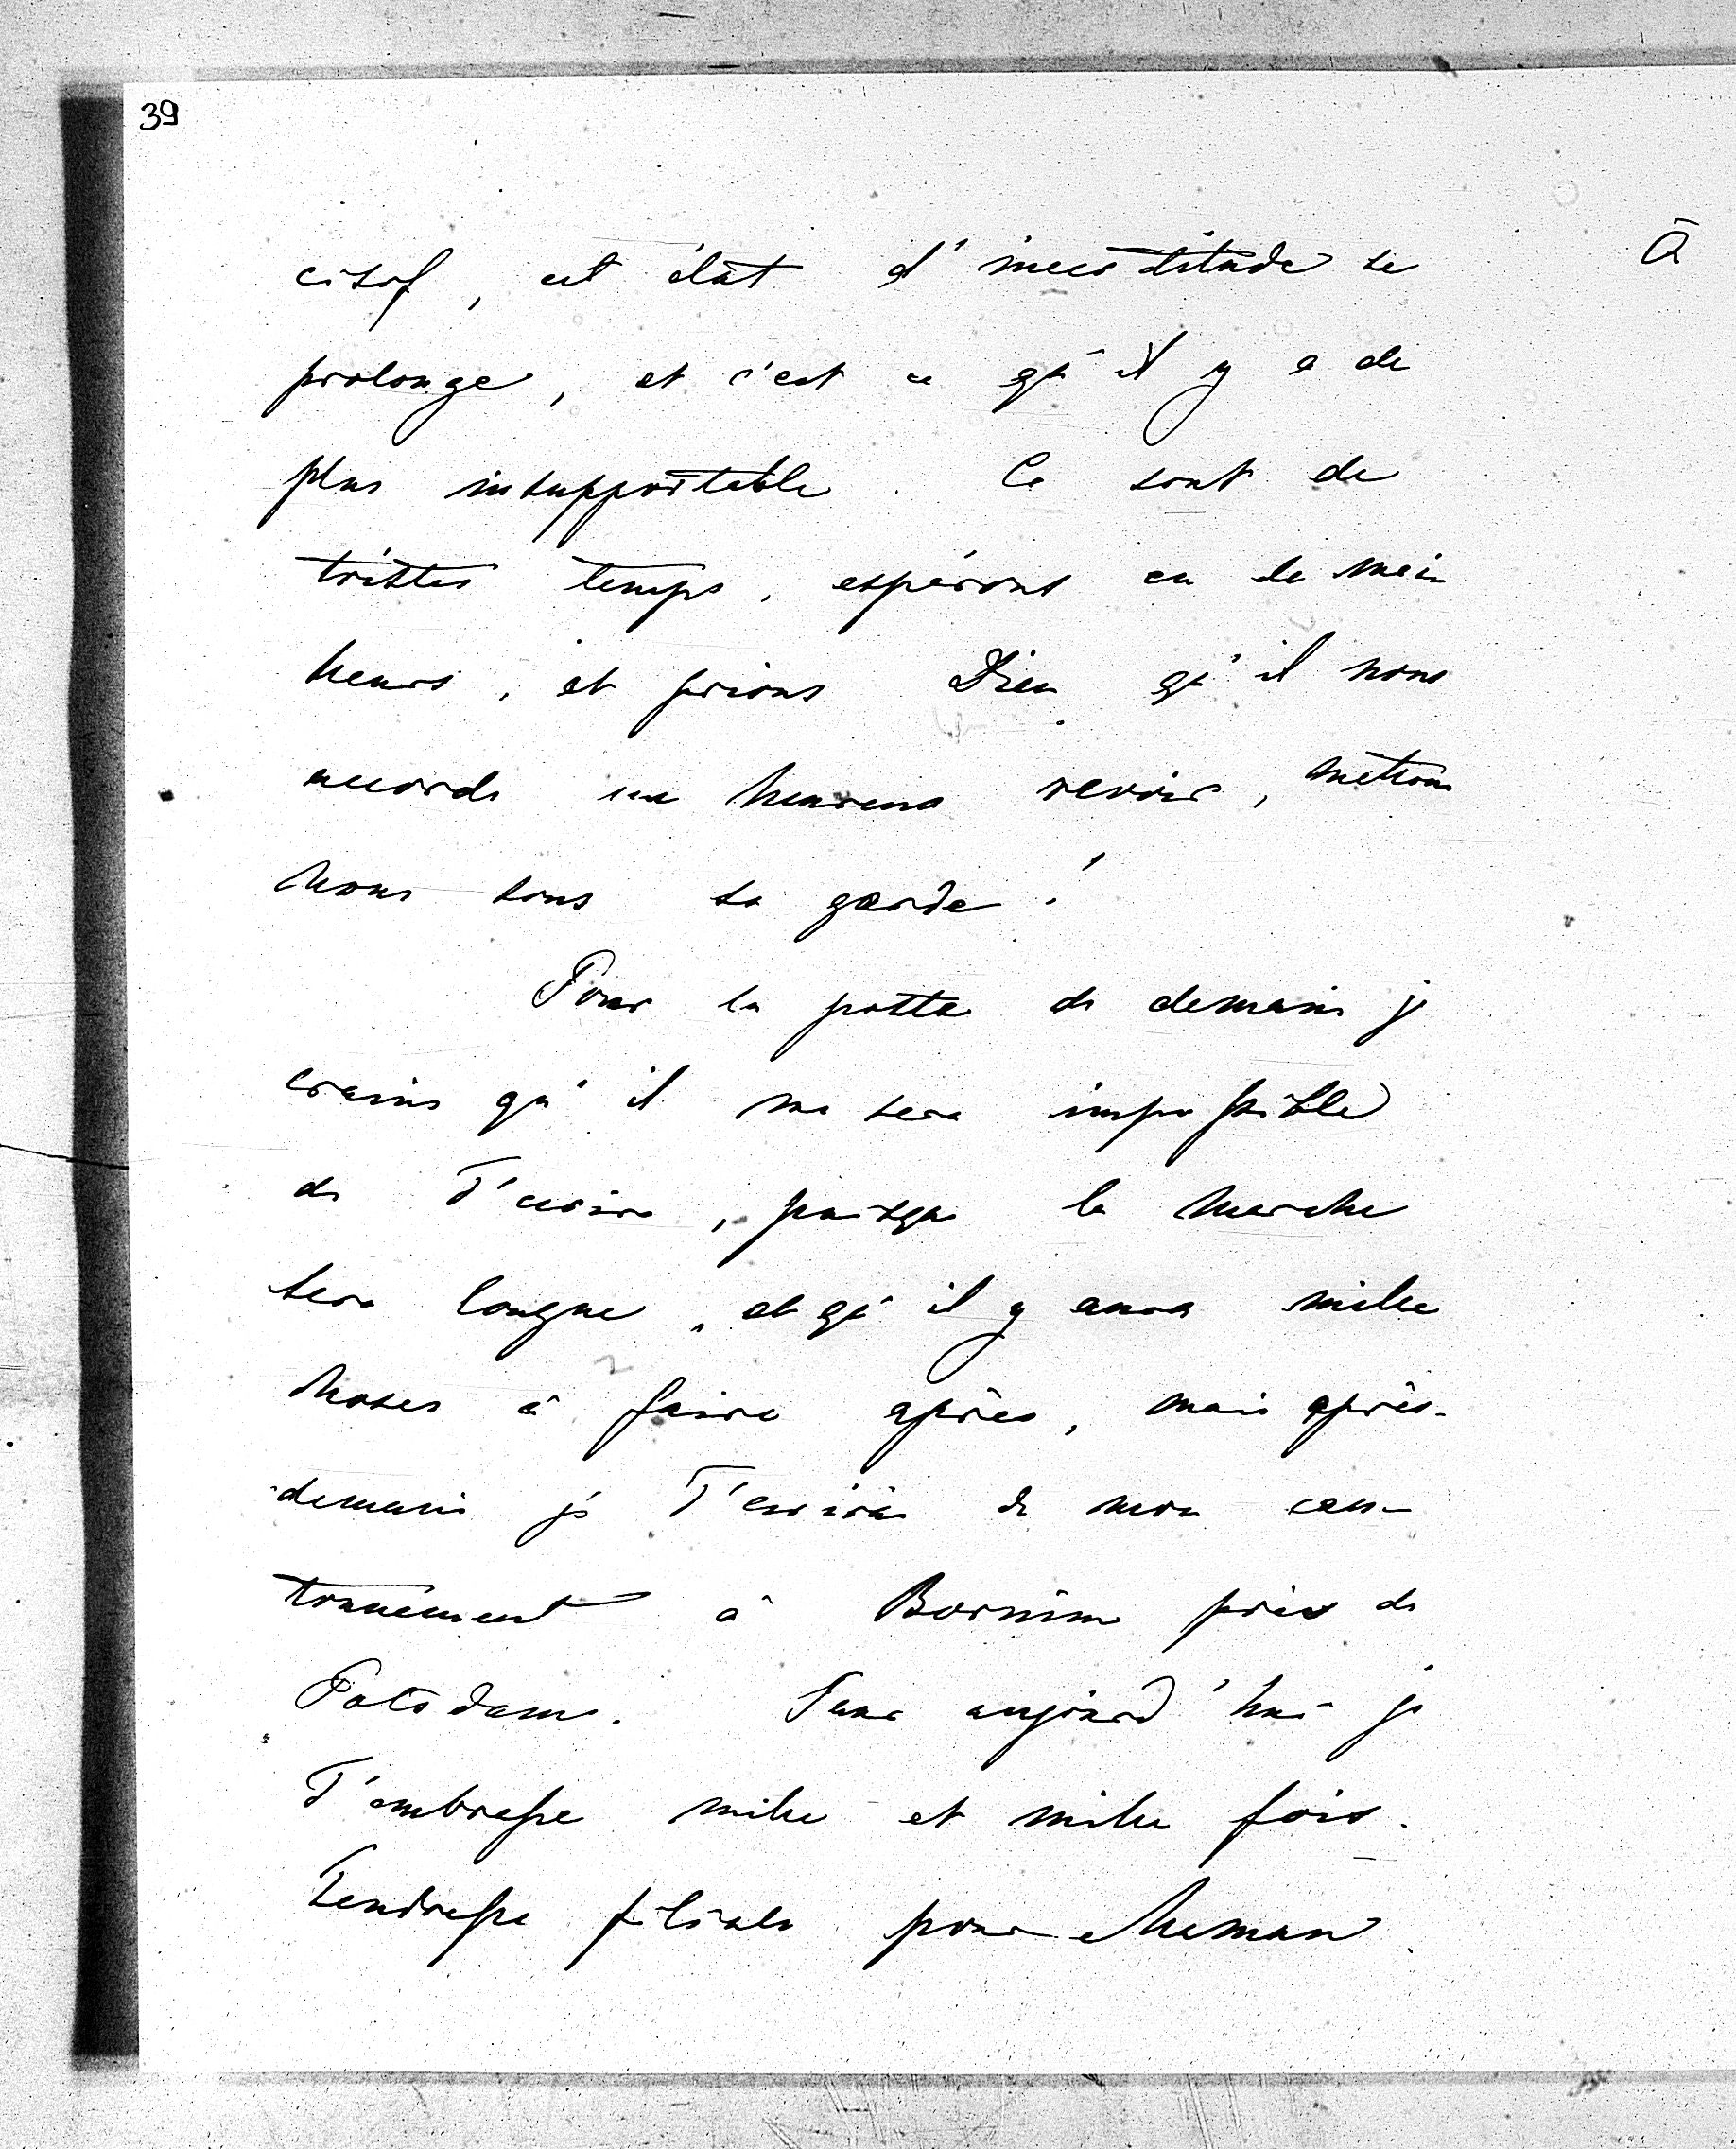 39
cisif, cet état d'incertitude se
prolonge, et c'est ce qu'il y a de
plus insupportable. Ce sont de
tristes temps, espérons en de meil
heurs, et prions Dieu qu'il nous
accorde un heureux revoir, mettons
nous sous sa garde!
Pour la poste de demain je
crains qu'il me sera impossible
de T'ecrire, puisque la marche
sera longue, et qu'il y aura mille
choses à faire après, mais après-
demain je T'ecrirai de mon can-
tonnement à Bornim près de
Potsdam. Pour aujourd'hui je
T'embrasse mille et mille fois.
Tendresse filiale pour Maman.